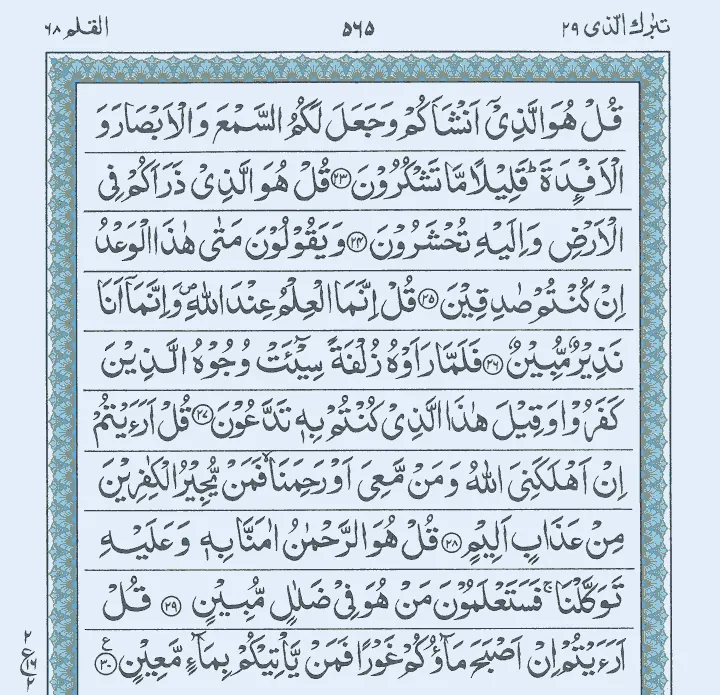 تبٰرك الّذی ۲۹
۵۶۵
القلم ۶۸
قُلْ هُوَ الَّذِیْۤ اَنْشَاَكُمْ وَجَعَلَ لَكُمُ السَّمْعَ وَالْاَبْصَارَ وَ
الْاَفْـِٕدَةَ ؕ قَلِیْلًا مَّا تَشْكُرُوْنَ ۲۳ قُلْ هُوَ الَّذِیْ ذَرَاَكُمْ فِی
الْاَرْضِ وَاِلَیْهِ تُحْشَرُوْنَ ۲۴ وَیَقُوْلُوْنَ مَتٰی هٰذَا الْوَعْدُ
اِنْ كُنْتُمْ صٰدِقِیْنَ ۲۵ قُلْ اِنَّمَا الْعِلْمُ عِنْدَ اللّٰهِ ۪ وَاِنَّمَاۤ اَنَا
نَذِیْرٌ مُّبِیْنٌ ۲۶ فَلَمَّا رَاَوْهُ زُلْفَةً سِیْٓـَٔتْ وُجُوْهُ الَّذِیْنَ
كَفَرُوْا وَقِیْلَ هٰذَا الَّذِیْ كُنْتُمْ بِهٖ تَدَّعُوْنَ ۲۷ قُلْ اَرَءَیْتُمْ
اِنْ اَهْلَكَنِیَ اللّٰهُ وَمَنْ مَّعِیَ اَوْ رَحِمَنَا ۙ فَمَنْ یُّجِیْرُ الْكٰفِرِیْنَ
مِنْ عَذَابٍ اَلِیْمٍ ۲۸ قُلْ هُوَ الرَّحْمٰنُ اٰمَنَّا بِهٖ وَعَلَیْهِ
تَوَكَّلْنَا ۚ فَسَتَعْلَمُوْنَ مَنْ هُوَ فِیْ ضَلٰلٍ مُّبِیْنٍ ۲۹ قُلْ
اَرَءَیْتُمْ اِنْ اَصْبَحَ مَآؤُكُمْ غَوْرًا فَمَنْ یَّاْتِیْكُمْ بِمَآءٍ مَّعِیْنٍ ۳۰ ع
۲
ع ۱۶
۲